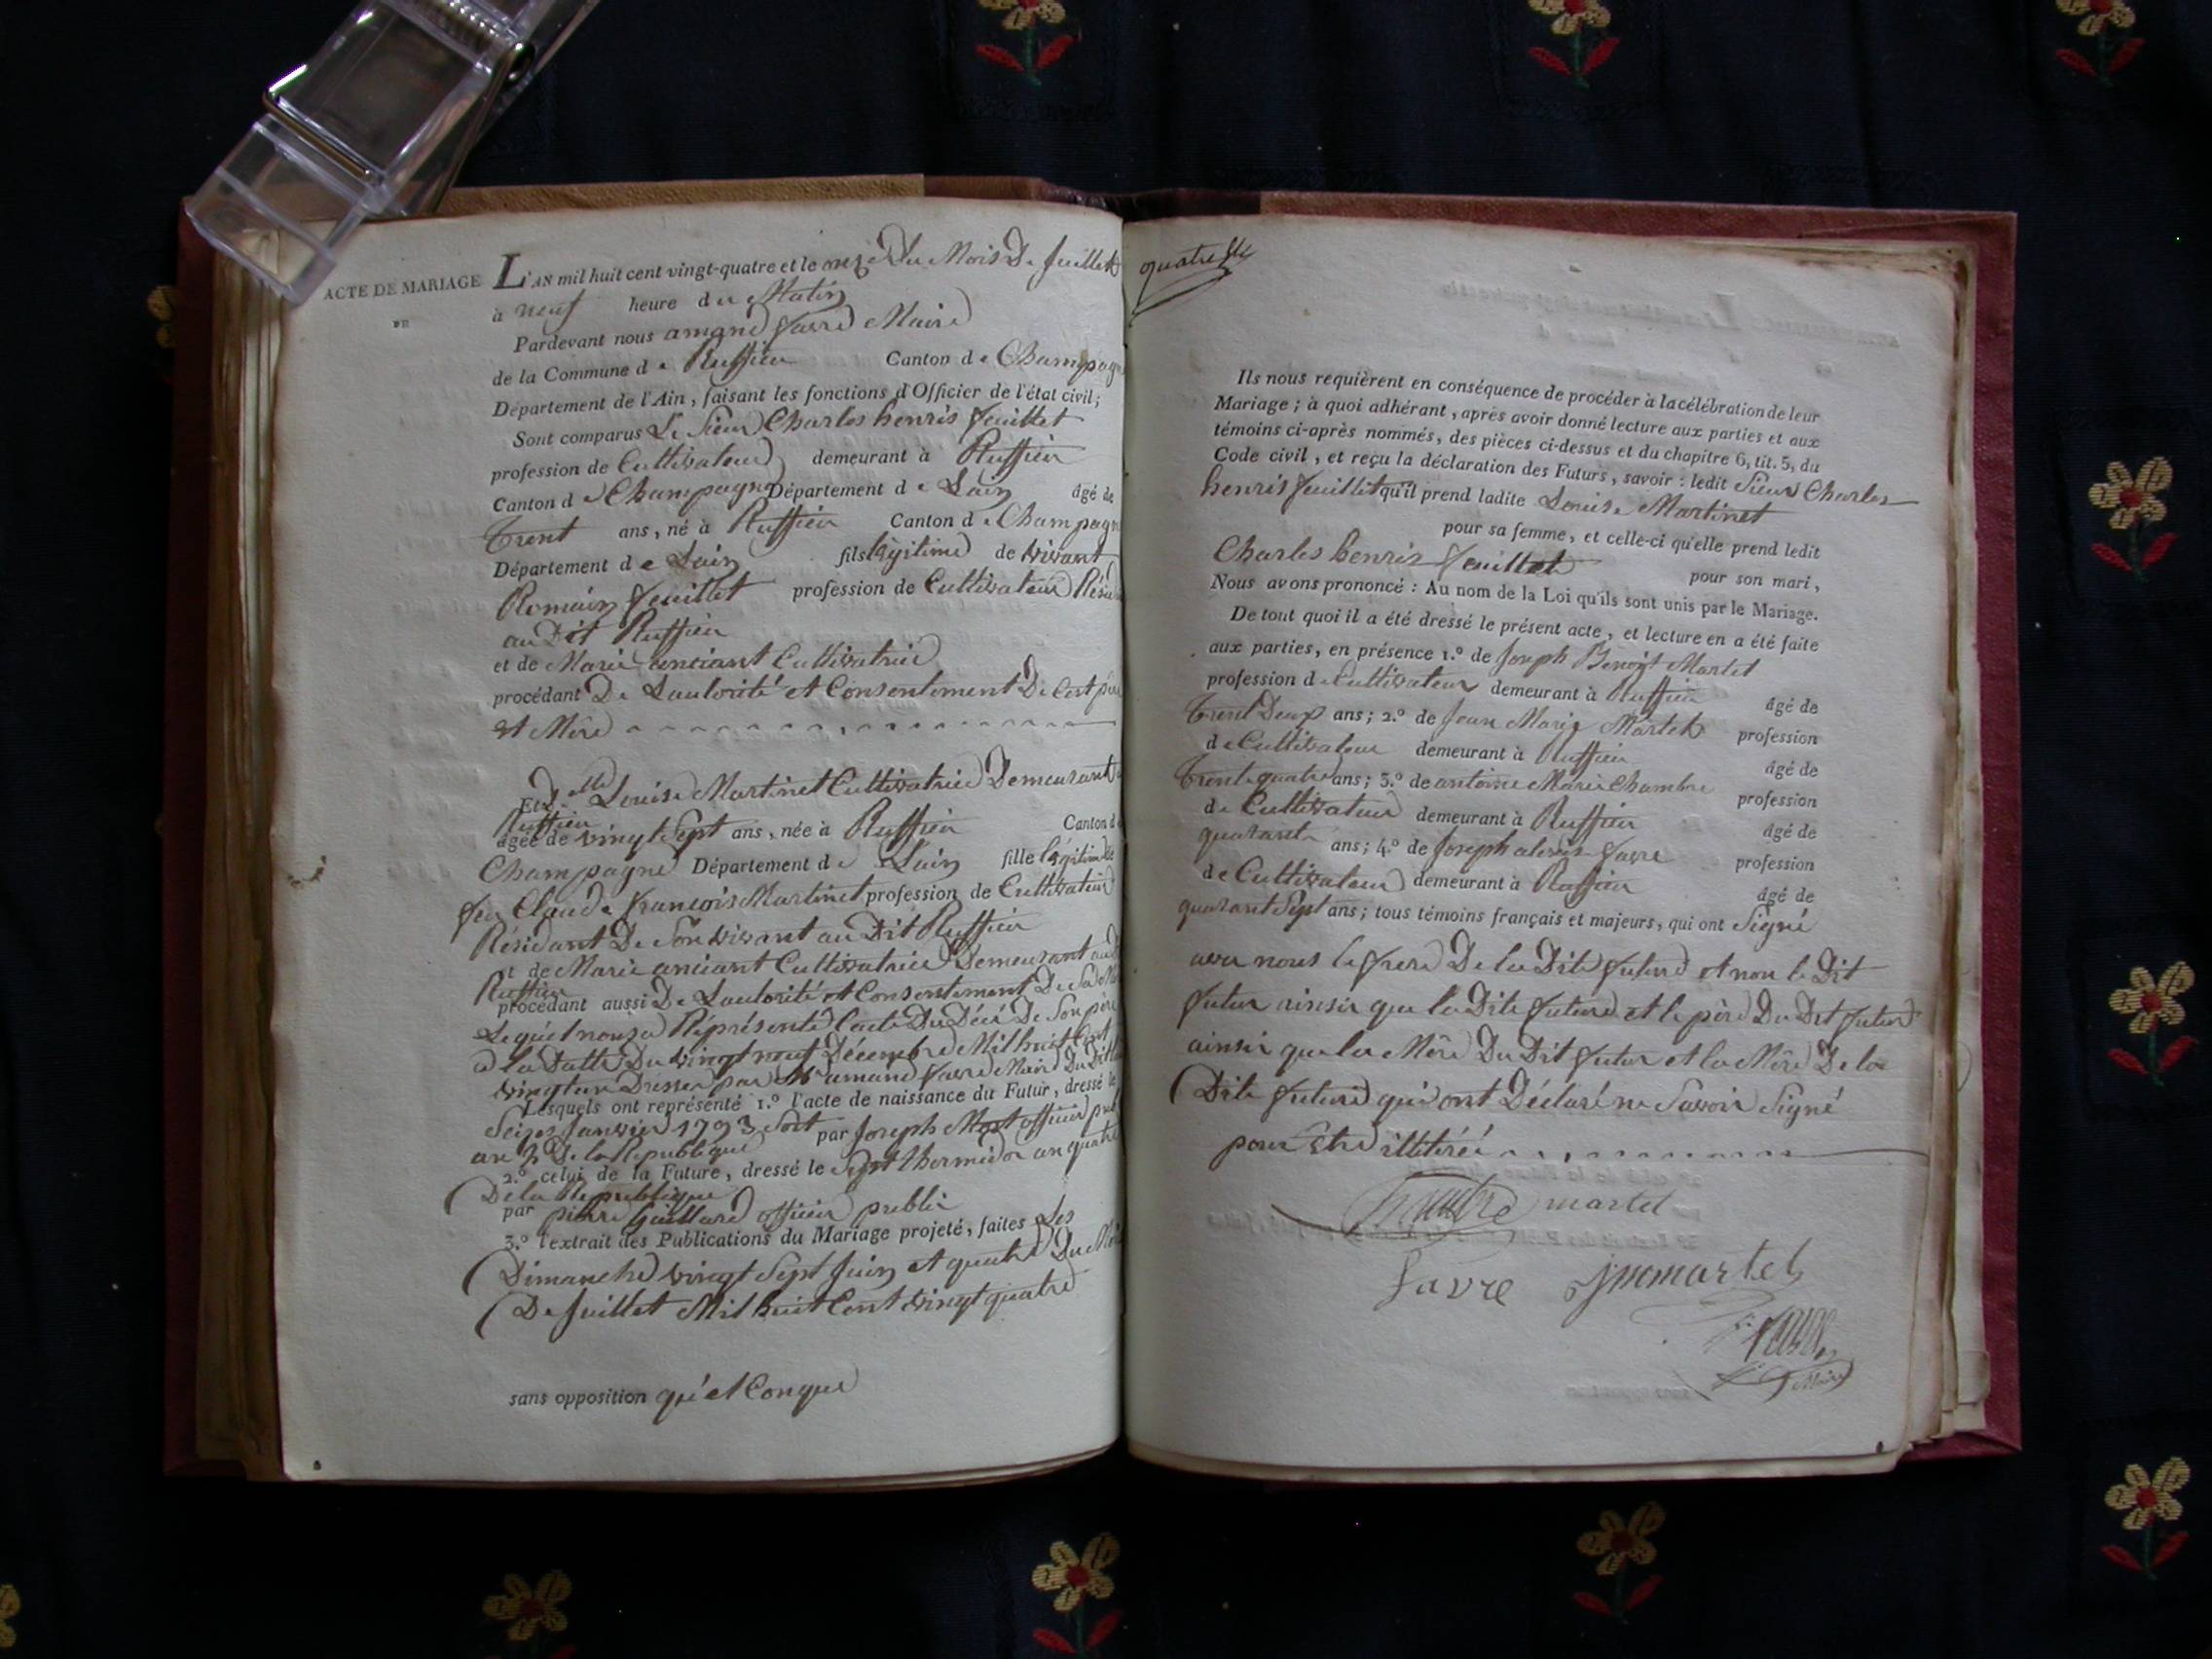 ACTE DE MARIAGE
DE
L'AN mil huit cent vingt-quatre et le onze Du Mois De Juillet
à neuf heure du Matin
Pardevant nous amand favre Maire
de la Commune de Ruffieu Canton de Champagn
Département de l'Ain, faisant les fonctions d'Officier de l'état civil;
Sont comparus Le Sieur Charles henris feuillet
profession de Cultivateur demeurant à Ruffieu
Canton de Champagne Département de Lain âgé de
Trent ans, né à Ruffieu Canton de Champagn
Département de Lain fils légitime de vivant
Romain feuillet profession de Cultivateur
au Dit Ruffieu
et de Marie anciant Cultivatrice
procédant De Lautorité et Consentement De Cest père
et Mère
Et Delle Louise Martinet Cultivatrice Demeurant
Ruffieu
âgée de vingt Sept ans, née à Ruffieu Canton d
Champagne Département de Lain fille légitime de
feu Claude francois Martinet profession de Cultivateur
Résidant De Son vivant au Dit Ruffieu
et de Marie anciant Cultivatrice Demeurant au
Ruffieu
procédant aussi De Lautorité et Consentement De Sa
Le quel nous a Réprésenté Lacte Du Décé De Son père
a la Datte Du vingt neuf Décembre Mil huit Cent
vingt un Dresser par Mr amand favre Maire Du Dit
Lesquels ont représenté 1.º l'acte de naissance du Futur, dressé le
Seize Janvier 1793 Soit par Joseph officier
an 2 De la Republique
2.º celui de la Future, dressé le Sept thermidor an quatre
De la Republique
par pierre Guillard officier public
3.º l'extrait des Publications du Mariage projeté, faites Les
Dimanche vingt Sept Juin et quatre Du
De Juillet Mil huit Cent vingt quatre
sans opposition qu'el Conque
quatre
Ils nous requièrent en conséquence de procéder à la célébration de leur
Mariage; à quoi adhérant, après avoir donné lecture aux parties et aux
témoins ci-après nommés, des pièces ci-dessus et du chapitre 6, tit. 5, du
Code civil, et reçu la déclaration des Futurs, savoir: ledit Sieur Charles
henris feuillet qu'il prend ladite Louise Martinet
pour sa femme, et celle-ci qu'elle prend ledit
Charles henris feuillet pour son mari,
Nous avons prononcé: Au nom de la Loi qu'ils sont unis par le Mariage.
De tout quoi il a été dressé le présent acte, et lecture en a été faite
aux parties, en présence 1.º de Joseph Benoit Martel
profession de Cultivateur demeurant à Ruffieu âgé de
Trent Deux ans; 2.º de Jean Marie Martel profession
de Cultivateur demeurant à Ruffieu âgé de
Trent quatre ans; 3.º de antoine Marie Chambre profession
de Cultivateur demeurant à Ruffieu âgé de
quarant ans; 4.º de Joseph alexis favre profession
de Cultivateur demeurant à Ruffieu âgé de
quarant Sept ans; tous témoins français et majeurs, qui ont Signé
avec nous le frere De la Dite future et non le Dit
futur ainsir que la Dite future et le père Du Dit futur
ainsir que la Mère Du Dit futur et la Mère De la
Dite future qui ont Déclaré ne Savoir Signé
pour Etre illitéré
martel
favre jmmartel
favre
Maire